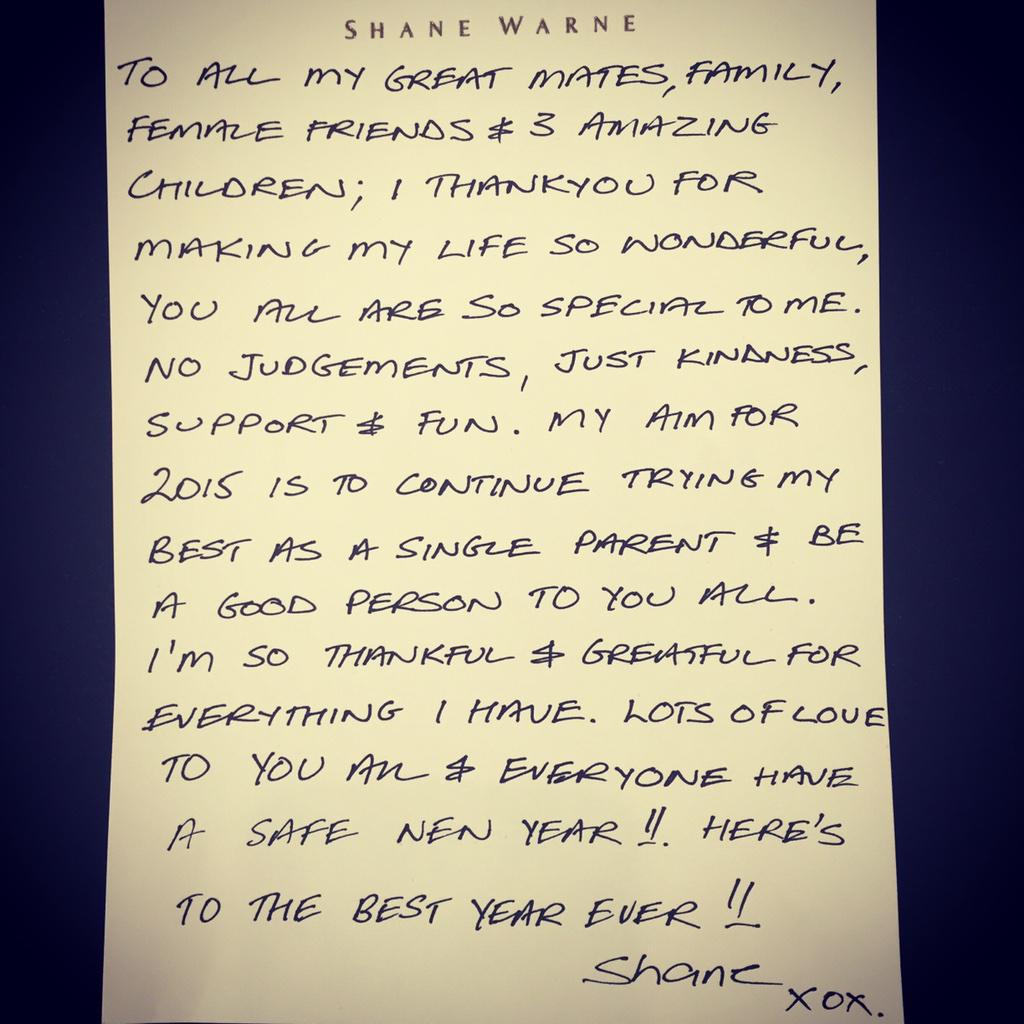 SHANE WARNE
TO ALL MY GREAT MATES, FAMILY,
FEMALE FRIENDS & 3 AMAZING
CHILDREN; I THANKYOU FOR
MAKING MY LIFE SO WONDERFUL,
YOU ALL ARE SO SPECIAL TO ME.
NO JUDGEMENTS, JUST KINDNESS,
SUPPORT & FUN. MY AIM FOR
2015 IS TO CONTINUE TRYING MY
BEST AS A SINGLE PARENT & BE
A GOOD PERSON TO YOU ALL.
I'M SO THANKFUL & GREATFUL FOR
EVERYTHING I HAVE. LOTS OF LOVE
TO YOU ALL & EVERYONE HAVE
A SAFE NEW YEAR!!. HERE'S
TO THE BEST YEAR EVER!!
Shane
xox.